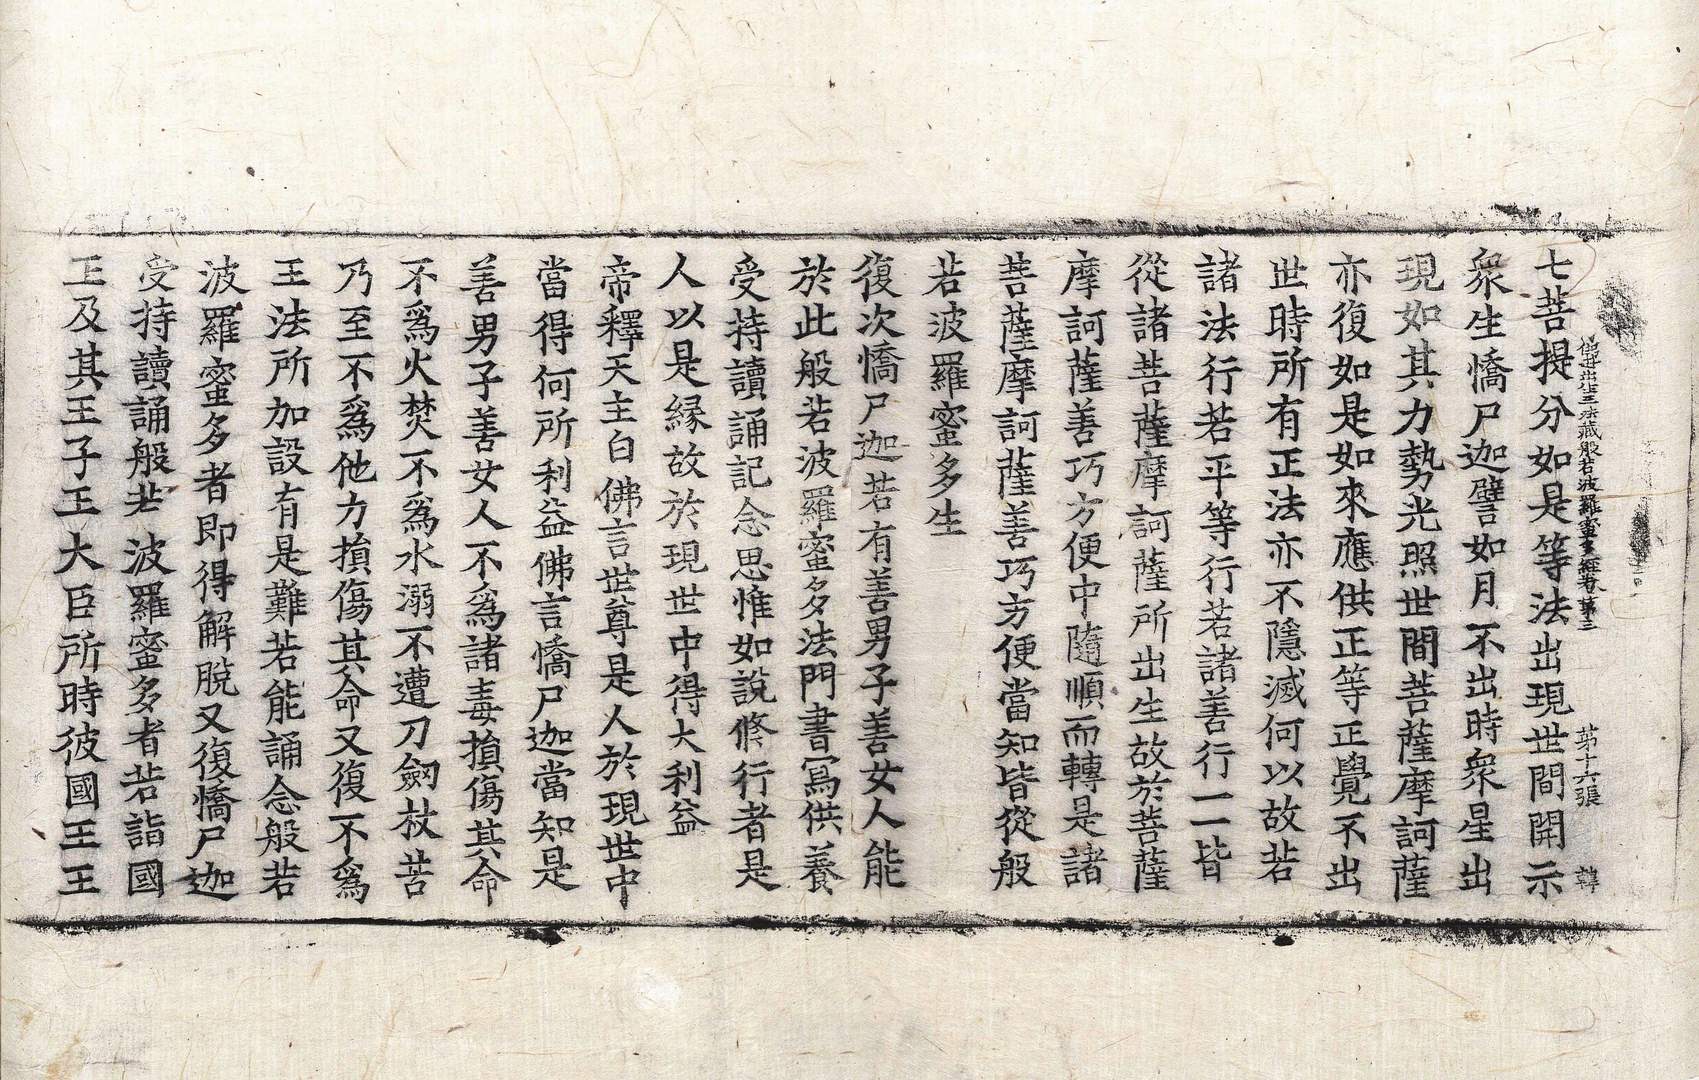 佛母出生三法藏般若波羅蜜多經卷第三 第十六張 韓
七菩提分如是等法出現世間開示
衆生憍尸迦譬如月不出時衆星出
現如其力勢光照世間菩薩摩訶薩
亦復如是如來應供正等正覺不出
世時所有正法亦不隱滅何以故若
諸法行若平等行若諸善行一一皆
從諸菩薩摩訶薩所出生故於菩薩
摩訶薩善巧方便中隨順而轉是諸
菩薩摩訶薩善巧方便當知皆從般
若波羅蜜多生
復次憍尸迦若有善男子善女人能
於此般若波羅蜜多法門書寫供養
受持讀誦記念思惟如說修行者是
人以是縁故於現世中得大利益
帝釋天主白佛言世尊是人於現世中
當得何所利益佛言憍尸迦當知是
善男子善女人不爲諸毒損傷其命
不爲火焚不爲水溺不遭刀劒杖苦
乃至不爲他力損傷其命又復不爲
王法所加設有是難若能誦念般若
波羅蜜多者即得解脫又復憍尸迦
受持讀誦般若波羅蜜多者若詣國
王及其王子王大臣所時彼國王王